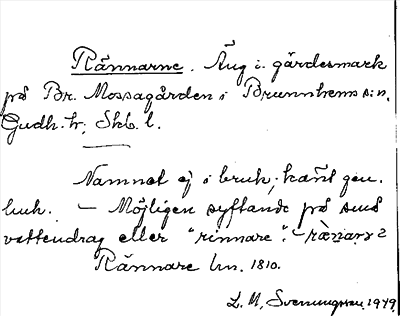 Rännarne. Äng i gärdesmark
på Br. Mossagården i Brunnhems sn,
Gudh. hr, Skb. l.
Namnet ej i bruk; känt gen.
luh. – Möjligen syftande på små
vattendrag eller "rinnare". –
Rännare lm. 1810.
L. M. Svenungsson, 1949.